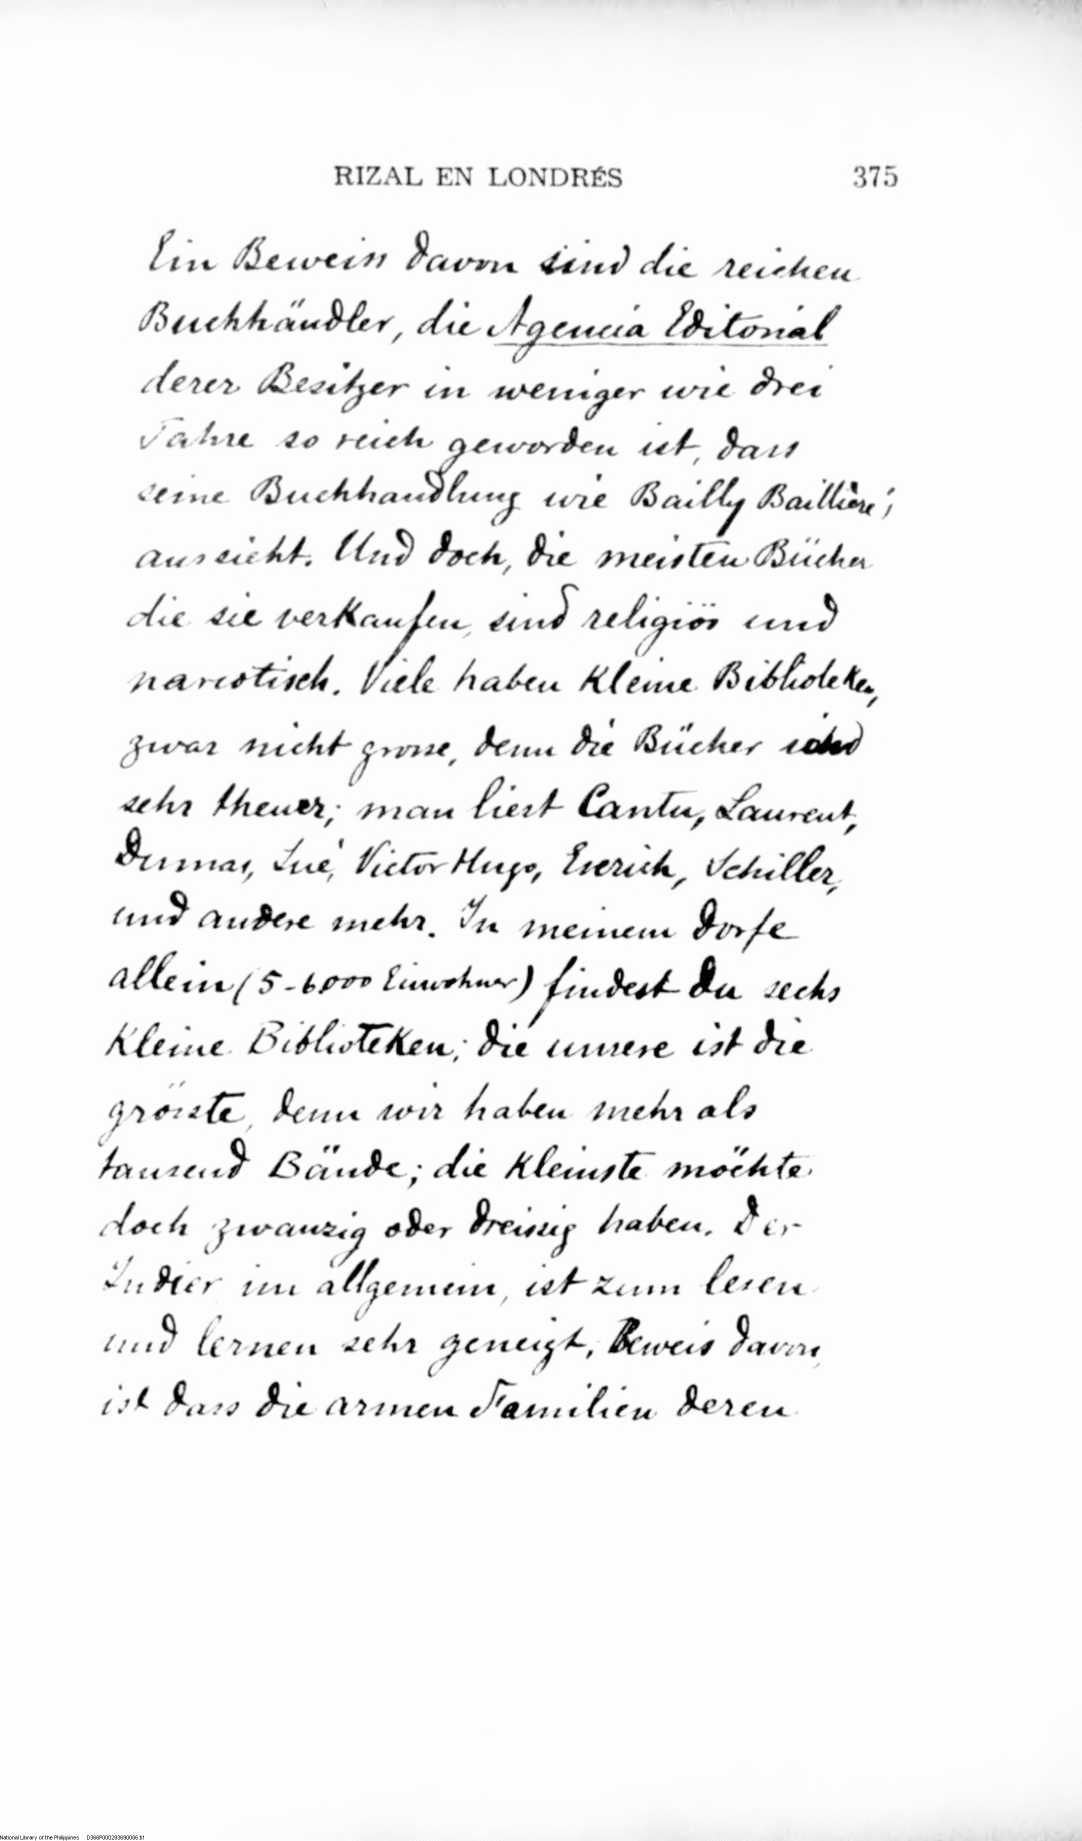 RIZAL EN LONDRÉS 375
Ein Beweiss davon sind die reichen
Buchhändler, die Agencia Editorial
derer Besitzer in weniger wie drei
Jahre so reich geworden ist, dass
seine Buchhandlung wie Bailly Baillière's
aussieht. Und doch, die meisten Bücher
die sie verkaufen, sind religiös und
narcotisch. Viele haben kleine Biblioteken,
zwar nicht grosse, denn die Bücher sind
sehr theuer; man liest Cantu, Laurent,
Dumas, Sué, Victor Hugo, Escrich, Schiller,
und andere mehr. In meinem Dorfe
allein (5-6000 Einwohner) findest Du sechs
kleine Biblioteken; die unsere ist die
grösste, denn wir haben mehr als
tausend Bände; die kleinste möchte
doch zwanzig oder dreissig haben. Der
Indier im allgemein, ist zum lesen
und lernen sehr geneigt; Beweis davon,
ist dass die armen Familien deren
National Library of the Philippines